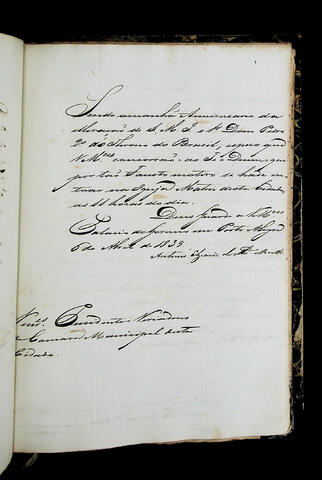 Sendo amanhã Anniversario da
elevação de S. M. I. e N. Dom Pedro
2º ao Throno do Brasil, espero que
V.Mces concorrão ao Te Deum, que
por tão fausto motivo se hade en
toar na Igreja Matriz desta Cidade,
as 11 horas do dia.
Deos Guarde a V.Mces
Palacio do Governo em Porto Alegre
6 de Abril de 1839.
Antonio Elzeario de Mirda e Brito
Presidente e Vereadores
da Camara Municipal desta
Cidade.